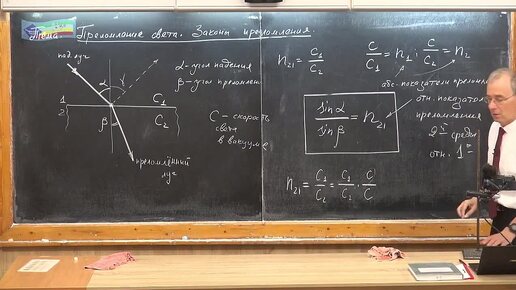 Тема: Преломление света. Законы преломления.
пад. луч
α γ
α-угол падения
β-угол преломлен.
1 C₁
2 C₂
β
преломлённый
луч
C - скорость
света
в вакууме
n₂₁ = C₁/C₂
C/C₁ = n₁ ; C/C₂ = n₂
абс. показатели преломл
sin α / sin β = n₂₁
отн. показатель
преломления
2ᵒᵗ среды
отн. 1ᵒᵗ
n₂₁ = C₁/C₂ = C₁/C₂ · C/C